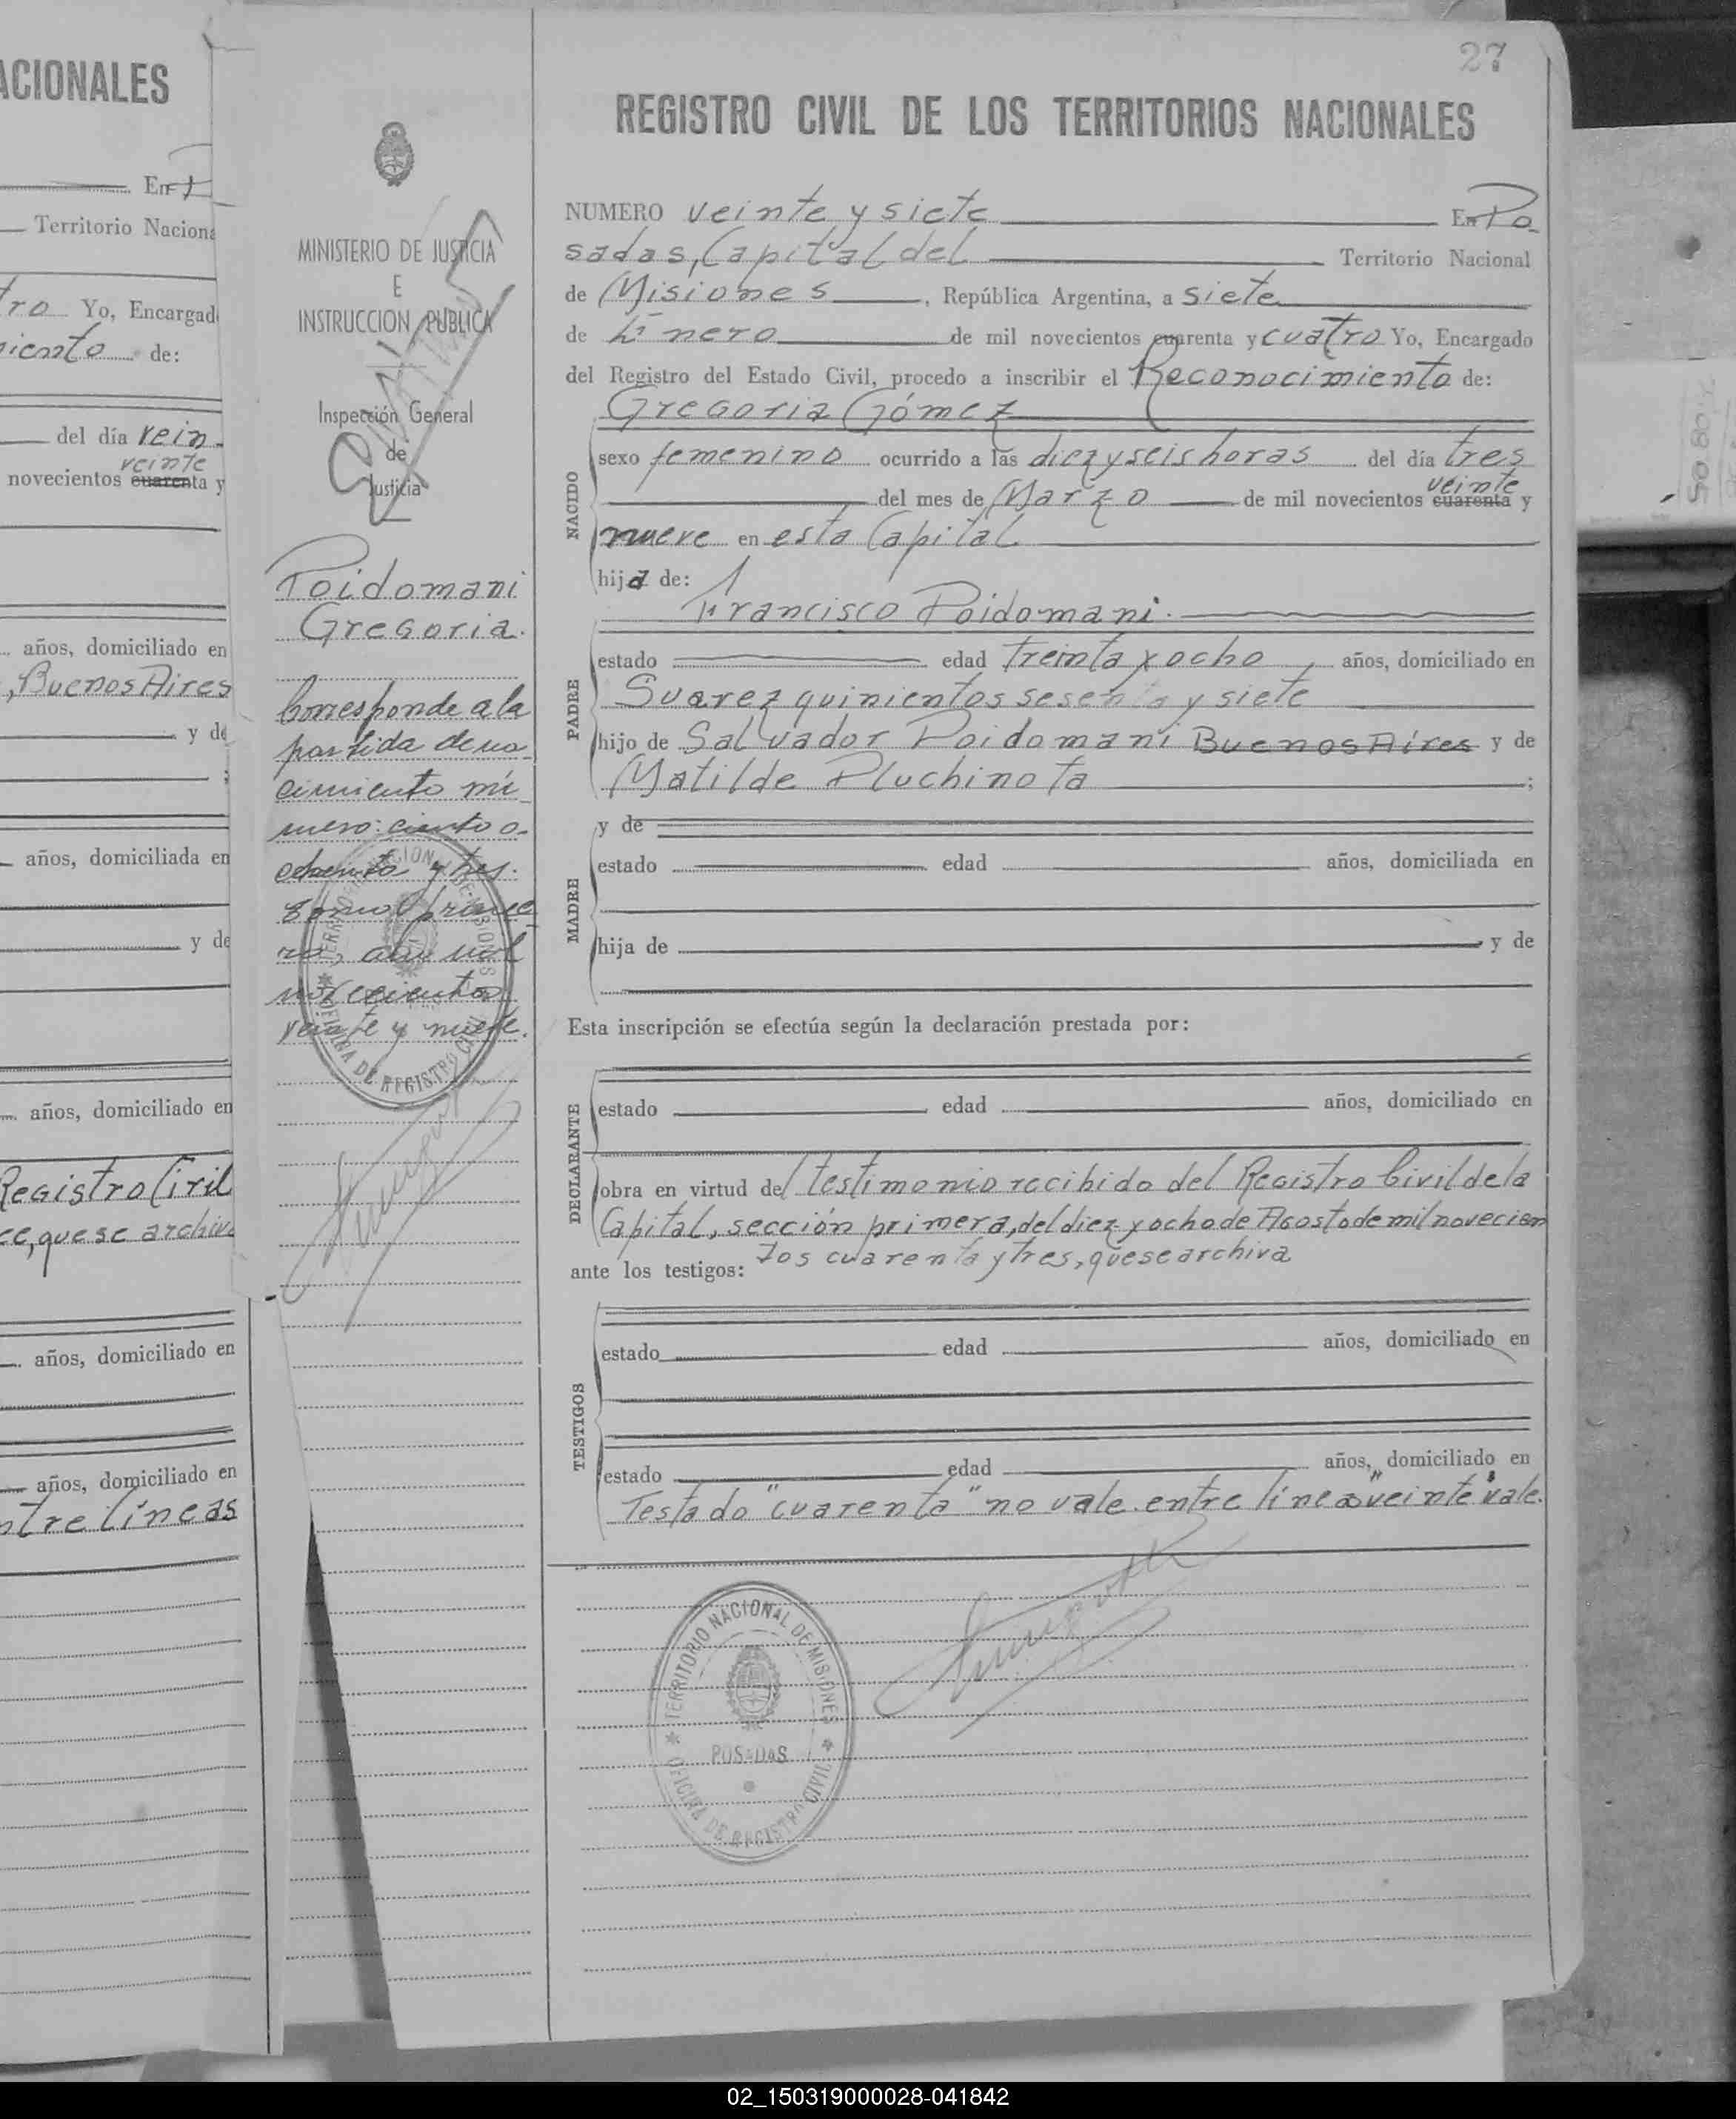 ACIONALES
En P
Territorio Naciona
tro Yo, Encargad
iento de:
del día vein
veinte
novecientos cuarenta y
años, domiciliado en
, Buenos Aires
y de
años, domiciliada en
y de
años, domiciliado en
Registro Civil
ce, que se archiva
años, domiciliado en
años, domiciliado en
ntre líneas
MINISTERIO DE JUSTICIA
E
INSTRUCCION PUBLICA
Inspección General
de
Justicia
Poidomani
Gregoria.
Corresponde a la
partida de na
cimiento nú
mero: ciento o-
chenta y tres.
tomo prime
ro, año mil
novecientos
veinte y nueve.
OFICINA DE REGISTRO CIVIL
27
REGISTRO CIVIL DE LOS TERRITORIOS NACIONALES
NUMERO veinte y siete En Po
sadas, Capital del Territorio Nacional
de Misiones, República Argentina, a siete
de Enero de mil novecientos cuarenta y cuatro Yo, Encargado
del Registro del Estado Civil, procedo a inscribir el Reconocimiento de:
Gregoria Gómez
NACIDO
sexo femenino ocurrido a las diez y seis horas del día tres
veinte
del mes de Marzo de mil novecientos cuarenta y
nueve en esta Capital
hija de:
Francisco Poidomani.
PADRE
estado edad treinta y ocho años, domiciliado en
Suarez quinientos sesenta y siete
hijo de Salvador Poidomani Buenos Aires y de
Matilde Pluchinota ;
MADRE
y de
estado edad años, domiciliada en
hija de y de
Esta inscripción se efectúa según la declaración prestada por:
DECLARANTE
estado edad años, domiciliado en
obra en virtud del testimonio recibido del Registro Civil de la
Capital, sección primera, del diez y ocho de Agosto de mil novecien
tos cuarenta y tres, que se archiva
ante los testigos:
TESTIGOS
estado edad años, domiciliado en
estado edad años, domiciliado en
Testado "cuarenta" no vale. entre líneas "veinte" vale.
TERRITORIO NACIONAL DE MISIONES
POSADAS
OFICINA DE REGISTRO CIVIL
02_150319000028-041842